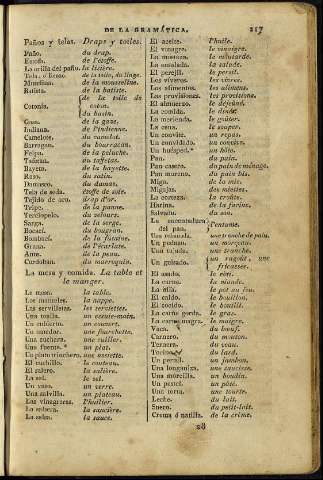 DE LA GRAMÁTICA. 217
Paños y telas. Draps y toiles.
Paño. du drap.
Estofa. de l'étoffe.
La orilla del paño. la lisière.
Tela, ó lienzo. de la toile, du linge.
Muselina. de la mousseline.
Batista. de la batiste.
Cotonía. de la toile de coton. du basin.
Gasa. de la gaze.
Indiana. de l'indienne.
Camelote. du camelot.
Barragan. du bouracan.
Felpa. de la peluche.
Tafetan. du taffetas.
Bayeta. de la bayette.
Raso. du satin.
Damasco. du damas.
Tela de seda. étoffe de soie.
Tejido de oro. drap d'or.
Tripe. de la panne.
Terciopelo. du velours.
Sarga. de la serge.
Bocací. du bougran.
Bombasí. de la futaine.
Grana. de l'écarlate.
Ante. de la peau.
Cordoban. du marroquin.
La mesa y comida. La table et
le manger.
La mesa. la table.
Los manteles. la nappe.
Las servilletas. les serviettes.
Una toalla. un essuie-main.
Un cubierto. un couvert.
Un tenedor. une fourchette.
Una cuchara. une cuiller.
Una fuente. un plat.
Un plato trinchero. une assiette.
El cuchillo. le couteau.
El salero. la salière.
La sal. le sel.
Un vaso. un verre.
Una salvilla. un plateau.
Las vinagreras. l'huilier.
La salsera. la saucière.
La salsa. la sauce.
El aceite. l'huile.
El vinagre. le vinaigre.
La mostaza. la moutarde.
La ensalada. la salade.
El perejil. le persil.
Los víveres. les vivres.
Los alimentos. les alimens.
Las provisiones. les provisions.
El almuerzo. le déjeuné.
La comida. le diner.
La merienda. le goûter.
La cena. le souper.
Un convite. un repas.
Un convidado. un convive.
Un huésped. un hôte.
Pan. du pain.
Pan casero. du pain de ménage.
Pan moreno. du pain bis.
Miga. de la mie.
Migajas. des miettes.
La corteza. la croûte.
Harina. de la farine.
Salvado. du son.
La encentadura del pan. l'entame.
Una rebanada. une tranche de pain.
Un pedazo. un morceau.
Una tajada. une tranche.
Un guisado. un ragoût, une fricassee.
El asado. le rôti.
La carne. la viande.
La olla. le pot au feu.
El caldo. le bouillon.
El cocido. le bouilli.
La carne gorda. le gras.
La carne magra. le maigre.
Vaca. du bœuf.
Carnero. du mouton.
Ternera. du veau.
Tocino. du lard.
Un pernil. un jambon.
Una longaniza. une saucisse.
Una morcilla. un boudin.
Un pastel. un pâté.
Una torta. une tourte.
Leche. du lait.
Suero. du petit-lait.
Crema ó natilla. de la crème.
28